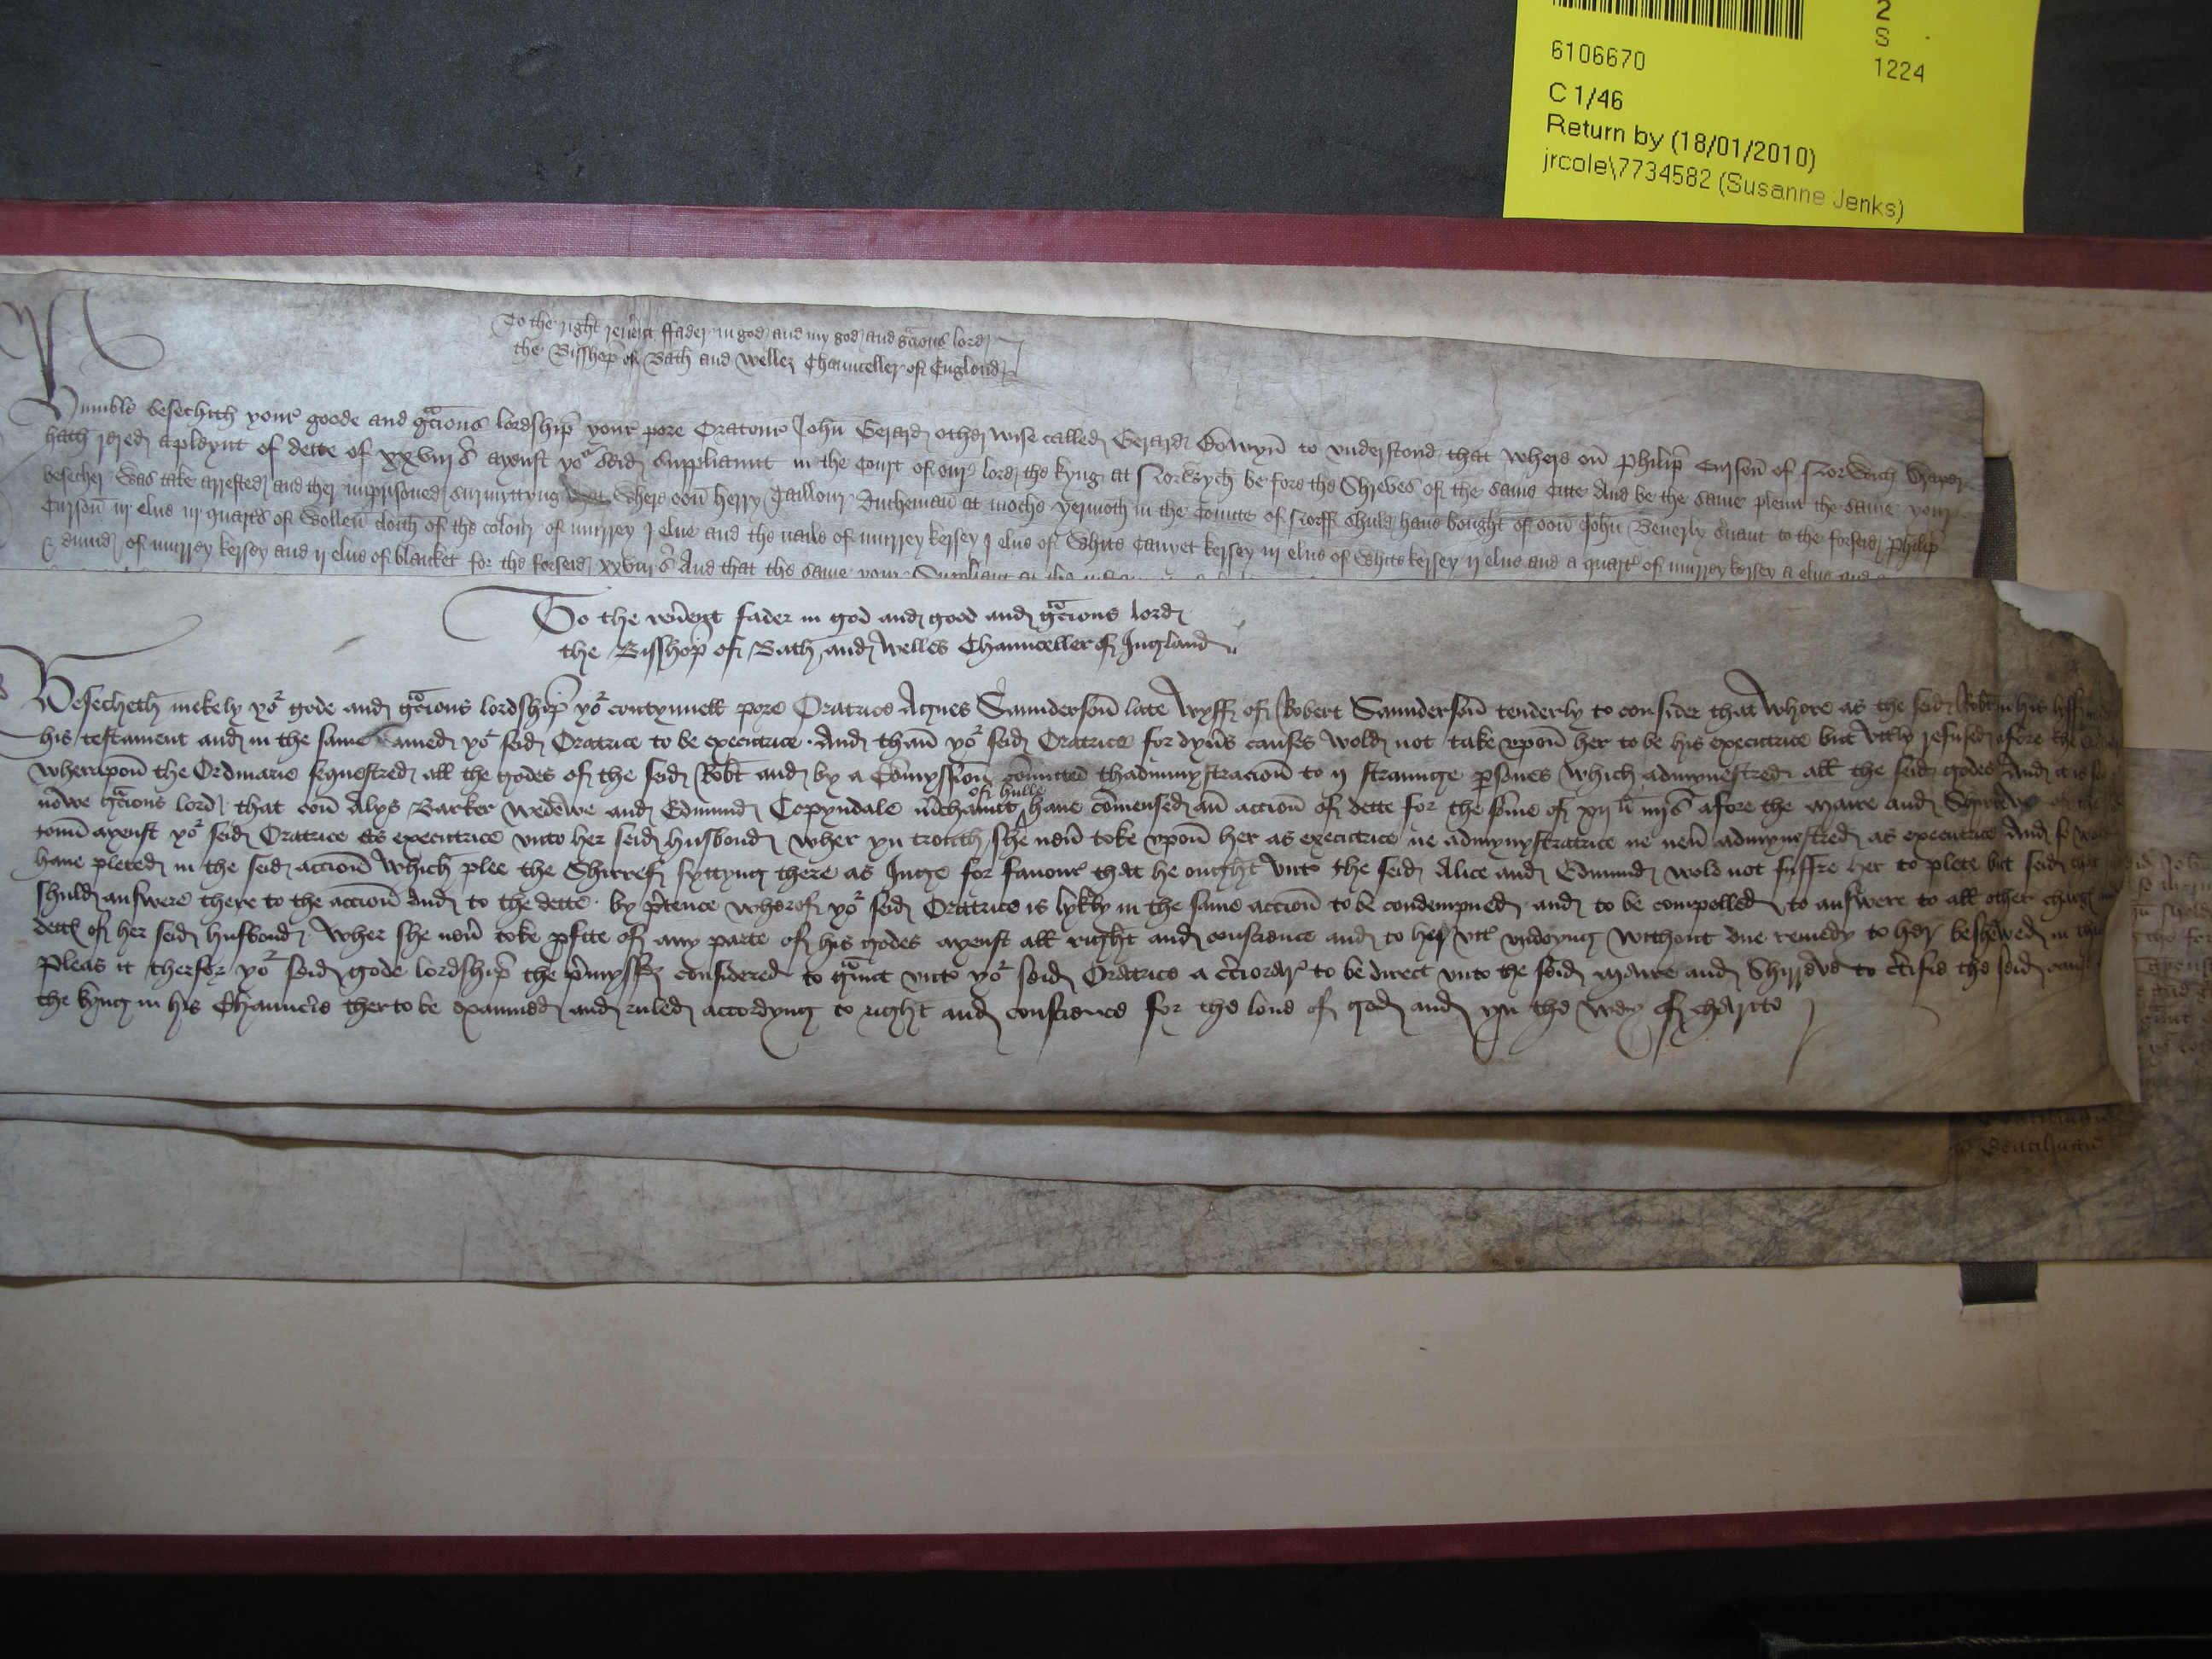 2
S
6106670
1224
C 1/46
Return by (18/01/2010)
jrcole\7734582 (Susanne Jenks)
To the right reuent ffader in god and my god and gracious lord
the Bisshop of Bath and Wellez Chaunceller of Englond
Humble besechith your goode and gracious lordship your pore Oratour John Gerard other wise called Gerard to vnderstond that where on Philip Curson of Norwich
hath a playnt of dette of xxviijs ayenst yor seid suppliaunt in the Court of our lord the kyng at Norwych be fore the Shreves of the same Cite And be the same pleint the same your
besecher was take arrested and ther inprisoned surmyttyng where oon Herry Taillour Ducheman at moche yermoth in the Counte of Norff shuld haue bought of oon John Beuerly to the forseid Philip
Curson iij elne iij quarts of wollen cloth of the colour of murrey j elne and the naile of murrey kersey j elne of white kersey iij elne of white kersey ij elne and a quart of murrey kersey a elne and
dimid of murrey kersey and ij elne of blanket for the forseid xxviijs And that the same your Suppliant at the
To the reuerent fader in god and good and gracious lord
the Bisshop of Bath and Welles Chaunceller of Ingland
Besecheth mekely yor gode and gracious lordship yor contynuell pore Oratrice Agnes Saunderson late wyff of Robert Saunderson tenderly to consider that Where as the seid Robt in his lyff
his testament and in the same named yor seid Oratrice to be executrice And than yor seid Oratrice for dyuers causes wold not take vpon her to be his executrice but vttly refused afore the
wherapon the Ordinarie sequestred all the godes of the seid Robt and by a Comyssion comitted thadminystracion to ij straunge psones which admynestred all the seid godes And it is so
nowe gracious lord that oon Alys Barker wedewe and Edmund Copyndale merchaunt of hulle haue comensed an accion of dette for the some of xij li afore the maire and Shirevys of the
toun ayenst yor seid Oratrice as executrice vnto her seid husbond wher yn trouth she neuer toke vpon her as executrice ne admynystratrice ne neuer admynestred as executrice And so wold
haue pleted in the seid accion which plee the Shirref syttyng there as Juge for fauour that he ought vnto the seid Alice and Edmund wold not suffre her to plete but seid that
shuld answere there to the accion and to the dette by ptence wherof yor seid Oratrice is lykly in the same accion to be condempned and to be compelled to answere to all other charg and
detts of her seid husbond wher she neuer toke pfite of any parte of his godes ayenst all right and conscience and to her vtt vndoyng without due remedy to her beshewed in this
Pleas it therfor yor seid gode lordship the pmyssez considered to graunt vnto yor seid Oratrice a cciorar to be direct vnto the seid maire and Shirevs to ctifie the seid cause
the kyng in his Chauncerie ther to be examined and ruled accordyng to right and conscience for the loue of god and yn the wey of charite